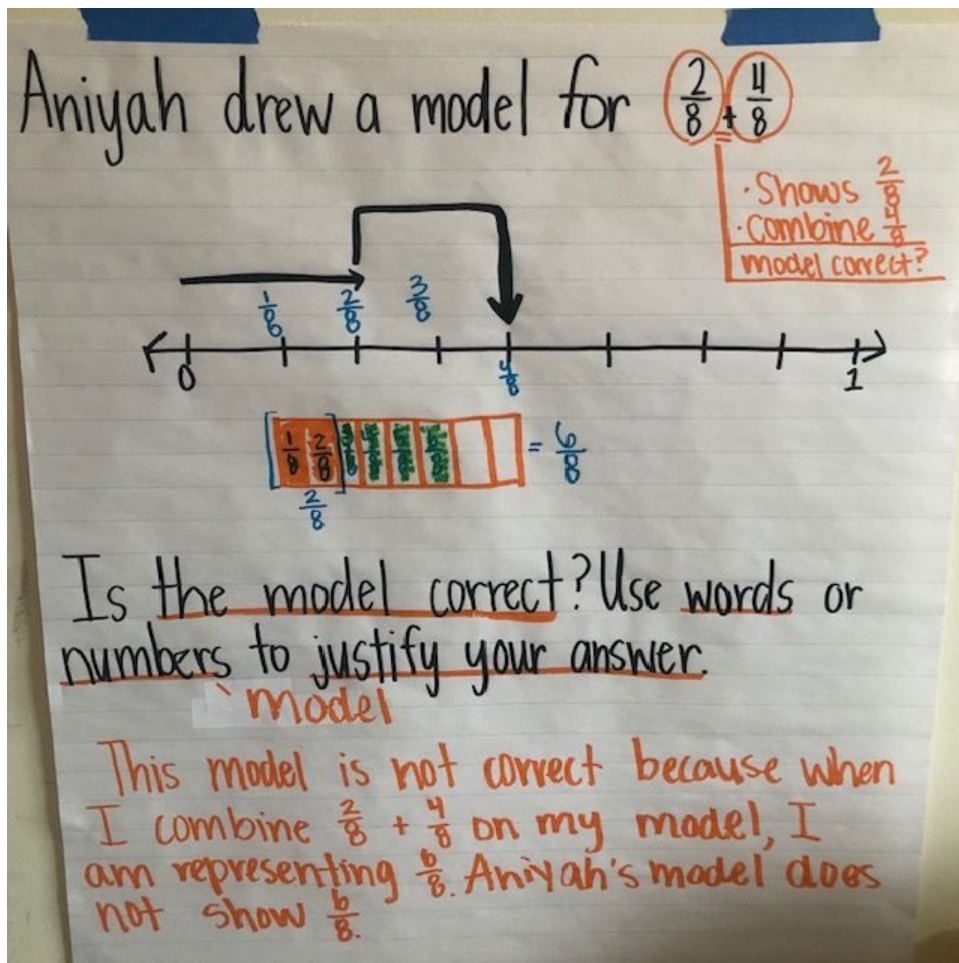 Aniyah drew a model for 2/8 + 4/8
· Shows 2/8
· combine 4/8
model correct?
1/8 2/8 3/8
0 4/8 1
1/8 2/8 = 6/8
2/8
Is the model correct? Use words or
numbers to justify your answer.
model
This model is not correct because when
I combine 2/8 + 4/8 on my model, I
am representing 6/8. Aniyah's model does
not show 6/8.